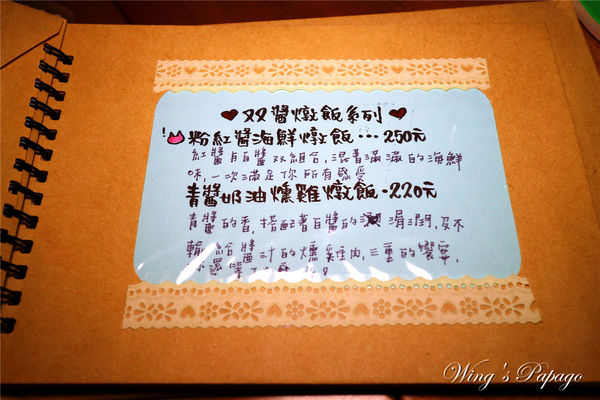 双醬燉飯系列
粉紅醬海鮮燉飯…250元
紅醬與白醬双組合,混著滿滿的海鮮
味,一次滿足你所有感受
青醬奶油燻雞燉飯-220元
青醬的香,搭配著白醬的 滑潤,又不
輸給醬汁的燻雞肉,三重的饗宴,
Wing's Papago